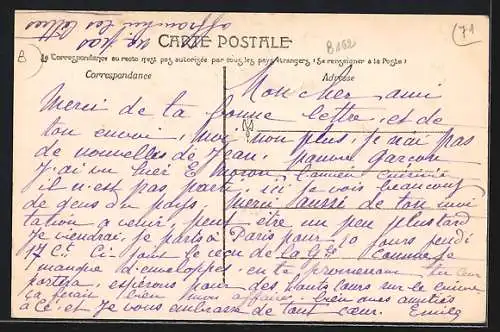 ne pas
affranchir les lettres
CARTE POSTALE
B162
71
B
La Correspondance au recto n'est pas autorisée par tous les pays étrangers (Se renseigner à la Poste)
Correspondance
Adresse
Mon cher ami
Merci de ta bonne lettre et de
ton envoi, moi non plus, je n'ai pas
de nouvelles de Jean, pauvre garçon
J'ai vu hier E. Moron, l'ancien
il n'est pas parti, ici je vois beaucoup
de gens du pays, merci aussi de ton invi
tation à venir, peut être un peu plus tard
je viendrai, je pars à Paris pour 10 jours jeudi
17 Ct. Ci joint le reçu de la Gie Comme je
manque d'enveloppes, en te promenant tu leur
portera, espérons pour des hauts cours sur le cuivre
ça ferait bien mon affaire, bien des amitiés
à C. et je vous embrasse de tout cœur. Emile